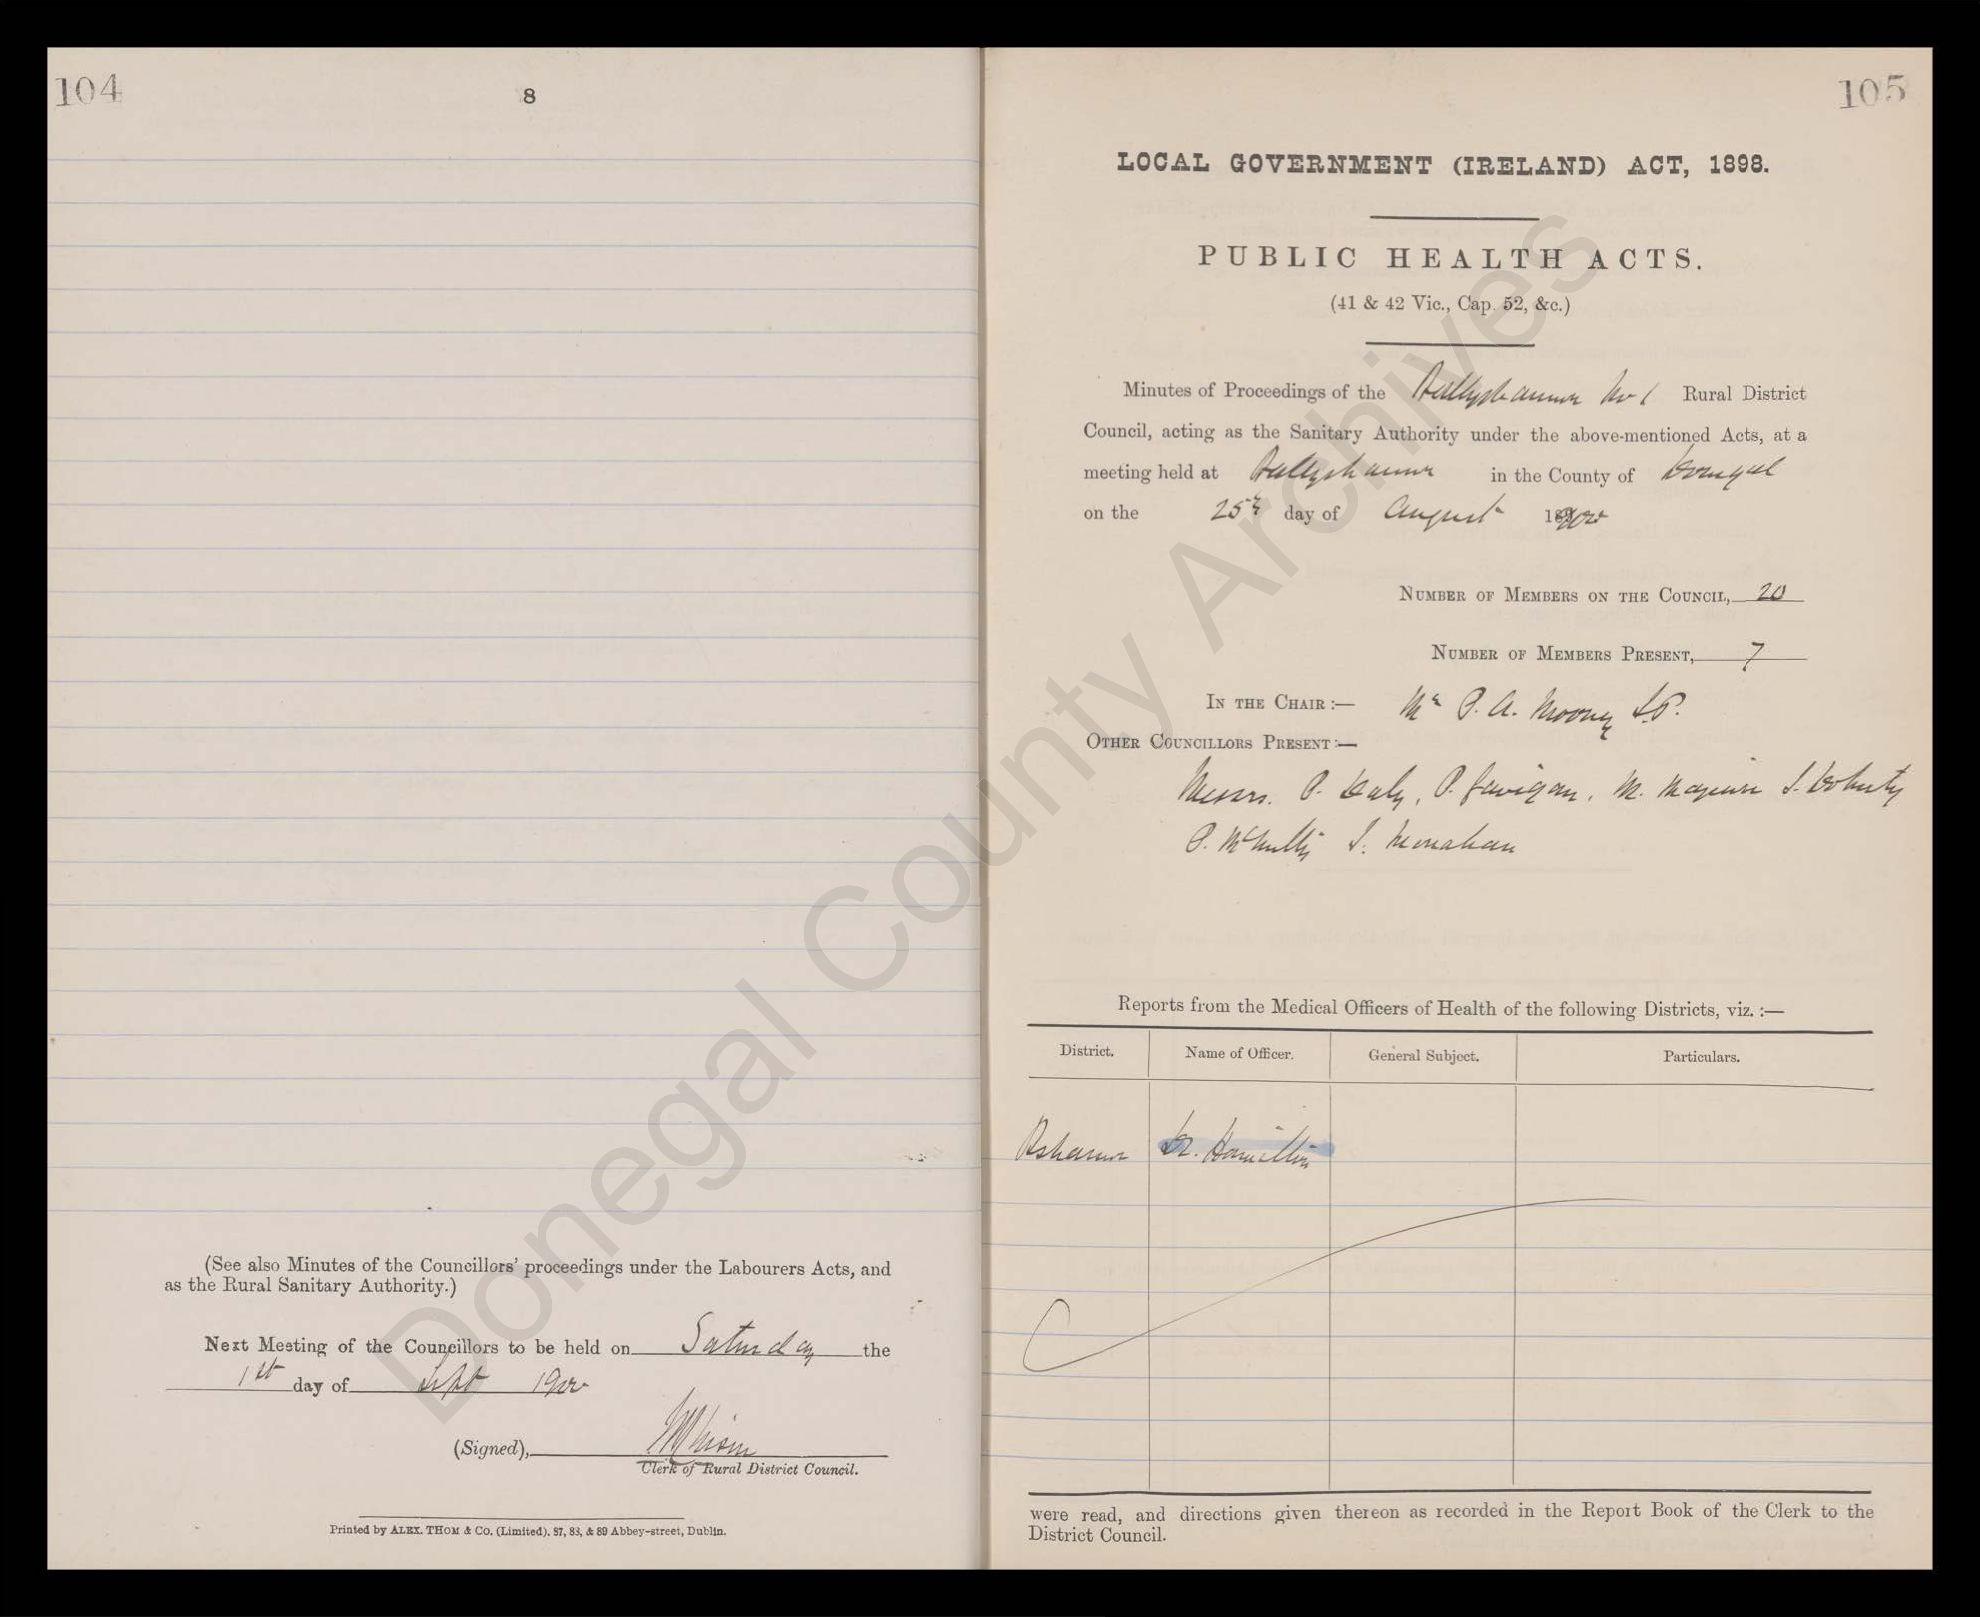 104
8
(See also Minutes of the Councillors' proceedings under the Labourers Acts, and
as the Rural Sanitary Authority.)
Next Meeting of the Councillors to be held on Saturday the
1st day of Sept 1900
(Signed),
Clerk of Rural District Council.
Printed by ALEX. THOM & Co. (Limited), 87, 88, & 89 Abbey-street, Dublin.
105
LOCAL GOVERNMENT (IRELAND) ACT, 1898.
PUBLIC HEALTH ACTS.
(41 & 42 Vic., Cap. 52, &c.)
Minutes of Proceedings of the Ballyshannon No 1 Rural District
Council, acting as the Sanitary Authority under the above-mentioned Acts, at a
meeting held at Ballyshannon in the County of Donegal
on the 25th day of August 1900
NUMBER OF MEMBERS ON THE COUNCIL, 20
NUMBER OF MEMBERS PRESENT, 7
IN THE CHAIR :— Mr P. A. Mooney J.P.
OTHER COUNCILLORS PRESENT :—
Messrs. P. Daly, P. Gavigan, M. Maguire J. Doherty
P. McNulty J. Monahan
Reports from the Medical Officers of Health of the following Districts, viz. :—
District. Name of Officer. General Subject. Particulars.
Bshannon Dr. Hamilton
were read, and directions given thereon as recorded in the Report Book of the Clerk to the
District Council.
Donegal County Archives